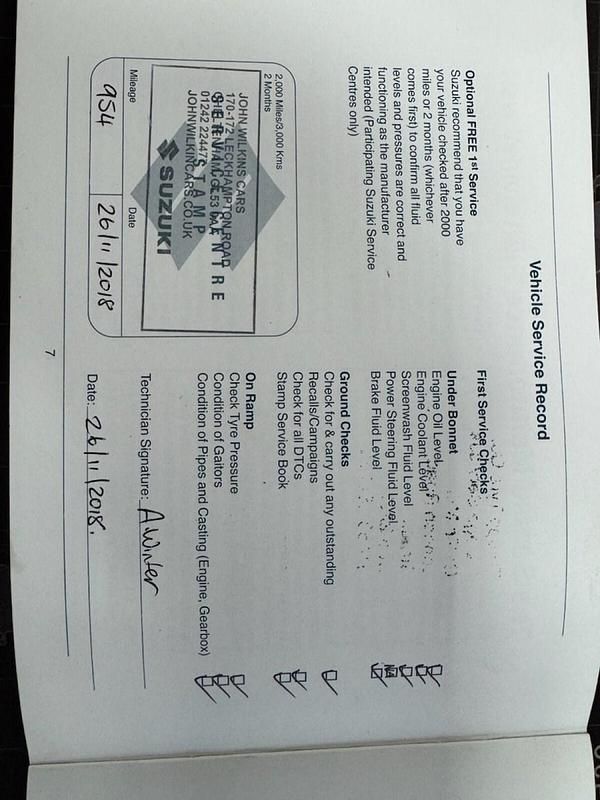 Vehicle Service Record
Optional FREE 1st Service
Suzuki recommend that you have
your vehicle checked after 2000
miles or 2 months (whichever
comes first) to confirm all fluid
levels and pressures are correct and
functioning as the manufacturer
intended (Participating Suzuki Service
Centres only)
2,000 Miles/3,000 Kms
2 Months
JOHN WILKINS CARS
170-172 LECKHAMPTON ROAD
SERVICE CENTRE
CHELTENHAM GL53 0AA
STAMP
01242 224475
JOHNWILKINCARS.CO.UK
SUZUKI
Mileage
Date
954
26/11/2018
First Service Checks
Under Bonnet
Engine Oil Level
Engine Coolant Level
Screenwash Fluid Level
Power Steering Fluid Level
NA
Brake Fluid Level
Ground Checks
Check for & carry out any outstanding
Recalls/Campaigns
Check for all DTCs
Stamp Service Book
On Ramp
Check Tyre Pressure
Condition of Gaitors
Condition of Pipes and Casting (Engine, Gearbox)
Technician Signature: A Winter
Date: 26/11/2018.
7